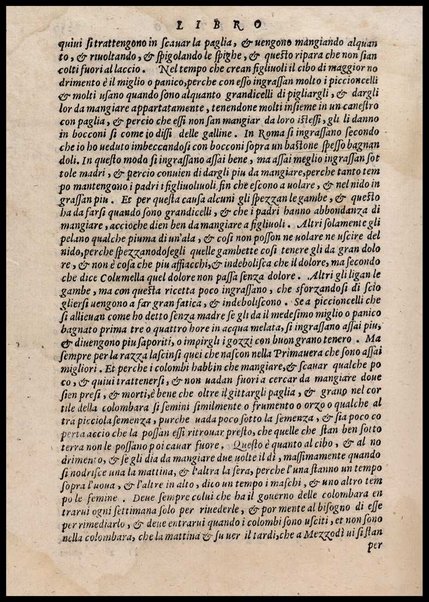 LIBRO
quiui si trattengono in scauar la paglia, & uengono mangiando alquan
to, & riuoltando, & spigolando le spighe, & questo ripara che non sian
colti fuori al laccio. Nel tempo che crean figliuoli il cibo di maggior no
drimento è il miglio o panico, perche con esso ingrassan molto i piccioncelli
& molti usano quando sono alquanto grandicelli di pigliargli, & dargli
lor da mangiare appartatamente, tenendone molti insieme in un canestro
con paglia, & percio che essi non san mangiar da loro istessi, gli li danno
in bocconi si come io dissi delle galline. In Roma si ingrassano secondo
che io ho ueduto imbeccandosi con bocconi sopra un bastone spesso bagnan
doli. In questo modo si ingrassano assai bene, ma assai meglio ingrassan sot
to le madri, & percio conuien di dargli piu da mangiare, perche tanto tem
po mantengono i padri i figliuoluoli, fin che escono a uolare, & nel nido in
grassan piu. Et per questa causa alcuni gli spezzan le gambe, & questo
ha da farsi quando sono grandicelli, & che i padri hanno abbondanza di
mangiare, accioche dien ben da mangiare a figliuoli. Altri solamente gli
pelano qualche piuma di un'ala, & cosi non posson ne uolare ne uscire del
nido, perche spezzandosegli quelle gambette cosi tenere gli da gran dolo
re, & non è cosa che piu affiacchi, & indebolisca che il dolore, ma secondo
che dice Columella quel dolore non passa senza dolore. Altri gli ligan le
gambe, ma con questa ricetta poco ingrassano, che sforzandosi di scio
gliersi uengono a far gran fatica, & indeboliscono. Se a piccioncelli che
si allieuan come ho detto senza madre se gli da il medesimo miglio o panico
bagnato prima tre o quattro hore in acqua melata, si ingrassano assai piu,
& diuengono piu saporiti, o impirgli i gozzi con buon grano tenero. Ma
sempre per la razza lascinsi quei che nascon nella Primauera che sono assai
migliori. Et perche i colombi habbin che mangiare, & scauar qualche po
co, & quiui trattenersi, & non uadan fuori a cercar da mangiare doue
sien presi, & morti, è bene che oltre il gittargli paglia, & grano nel cor
tile della colombara si semini similmente o frumento o orzo o qualche al
tra picciola semenza, purche uada poco sotto la semenza, & sia poco co
perta accio che la possan essi ritrouar presto, che quelle che stan ben sotto
terra non le possano poi cauar fuore. Questo è quanto al cibo, & al no
drimento, & se gli dia da mangiare due uolte il dì, massimamente quando
si nodrisce una la mattina, & l'altra la sera, perche l'una stanno un tempo
sopra l'oua, & l'altre in alto, dico un tempo i maschi, & uno altro tem
po le femine. Deue sempre colui che ha il gouerno delle colombara en
trarui ogni settimana solo per riuederle, & por mente al bisogno di esse
per rimediarlo, & deue entrarui quando i colombi sono usciti, et non sono
nella colombara, che la mattina & su uer il tardi, che a Mezzodì ui si stan
per